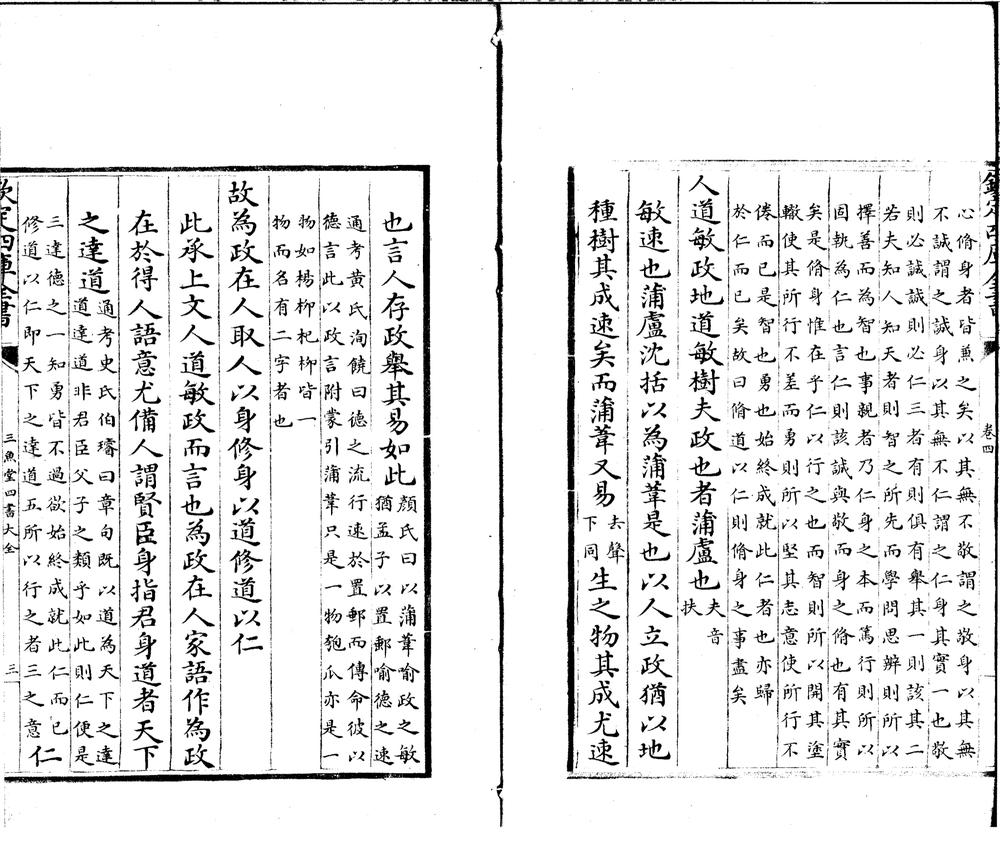 欽定四庫全書
卷四
心脩身者皆兼之矣以其無不敬謂之敬身以其無
不誠謂之誠身以其無不仁謂之仁身其實一也敬
則必誠誠則必仁三者有則俱有舉其一則該其二
若夫知人知天者則智之所先而學問思辨則所以
擇善而為智也事親者乃仁身之本而篤行則所以
固執為仁也言仁則該誠與敬而身之脩也有其實
矣是脩身惟在乎仁以行之也而智則所以開其塗
轍使其所行不差而勇則所以堅其志意使所行不
倦而已是智也勇也始終成就此仁者也亦歸
於仁而已矣故曰脩道以仁則脩身之事盡矣
人道敏政地道敏樹夫政也者蒲盧也夫音扶
敏速也蒲盧沈括以為蒲葦是也以人立政猶以地
種樹其成速矣而蒲葦又易去聲下同生之物其成尤速
也言人存政舉其易如此顏氏曰以蒲葦喻政之敏
猶孟子以置郵喻德之速
通考黄氏洵饒曰德之流行速於置郵而傳命彼以
德言此以政言附蒙引蒲葦只是一物匏瓜亦是一
物如楊柳杞柳皆一
物而名有二字者也
故為政在人取人以身修身以道修道以仁
此承上文人道敏政而言也為政在人家語作為政
在於得人語意尤備人謂賢臣身指君身道者天下
之達道通考史氏伯璿曰章句既以道為天下之達
道達道非君臣父子之類乎如此則仁便是
三達德之一知勇皆不過欲始終成就此仁而已
修道以仁即天下之達道五所以行之者三之意仁
欽定四庫全書
三魚堂四書大全
三